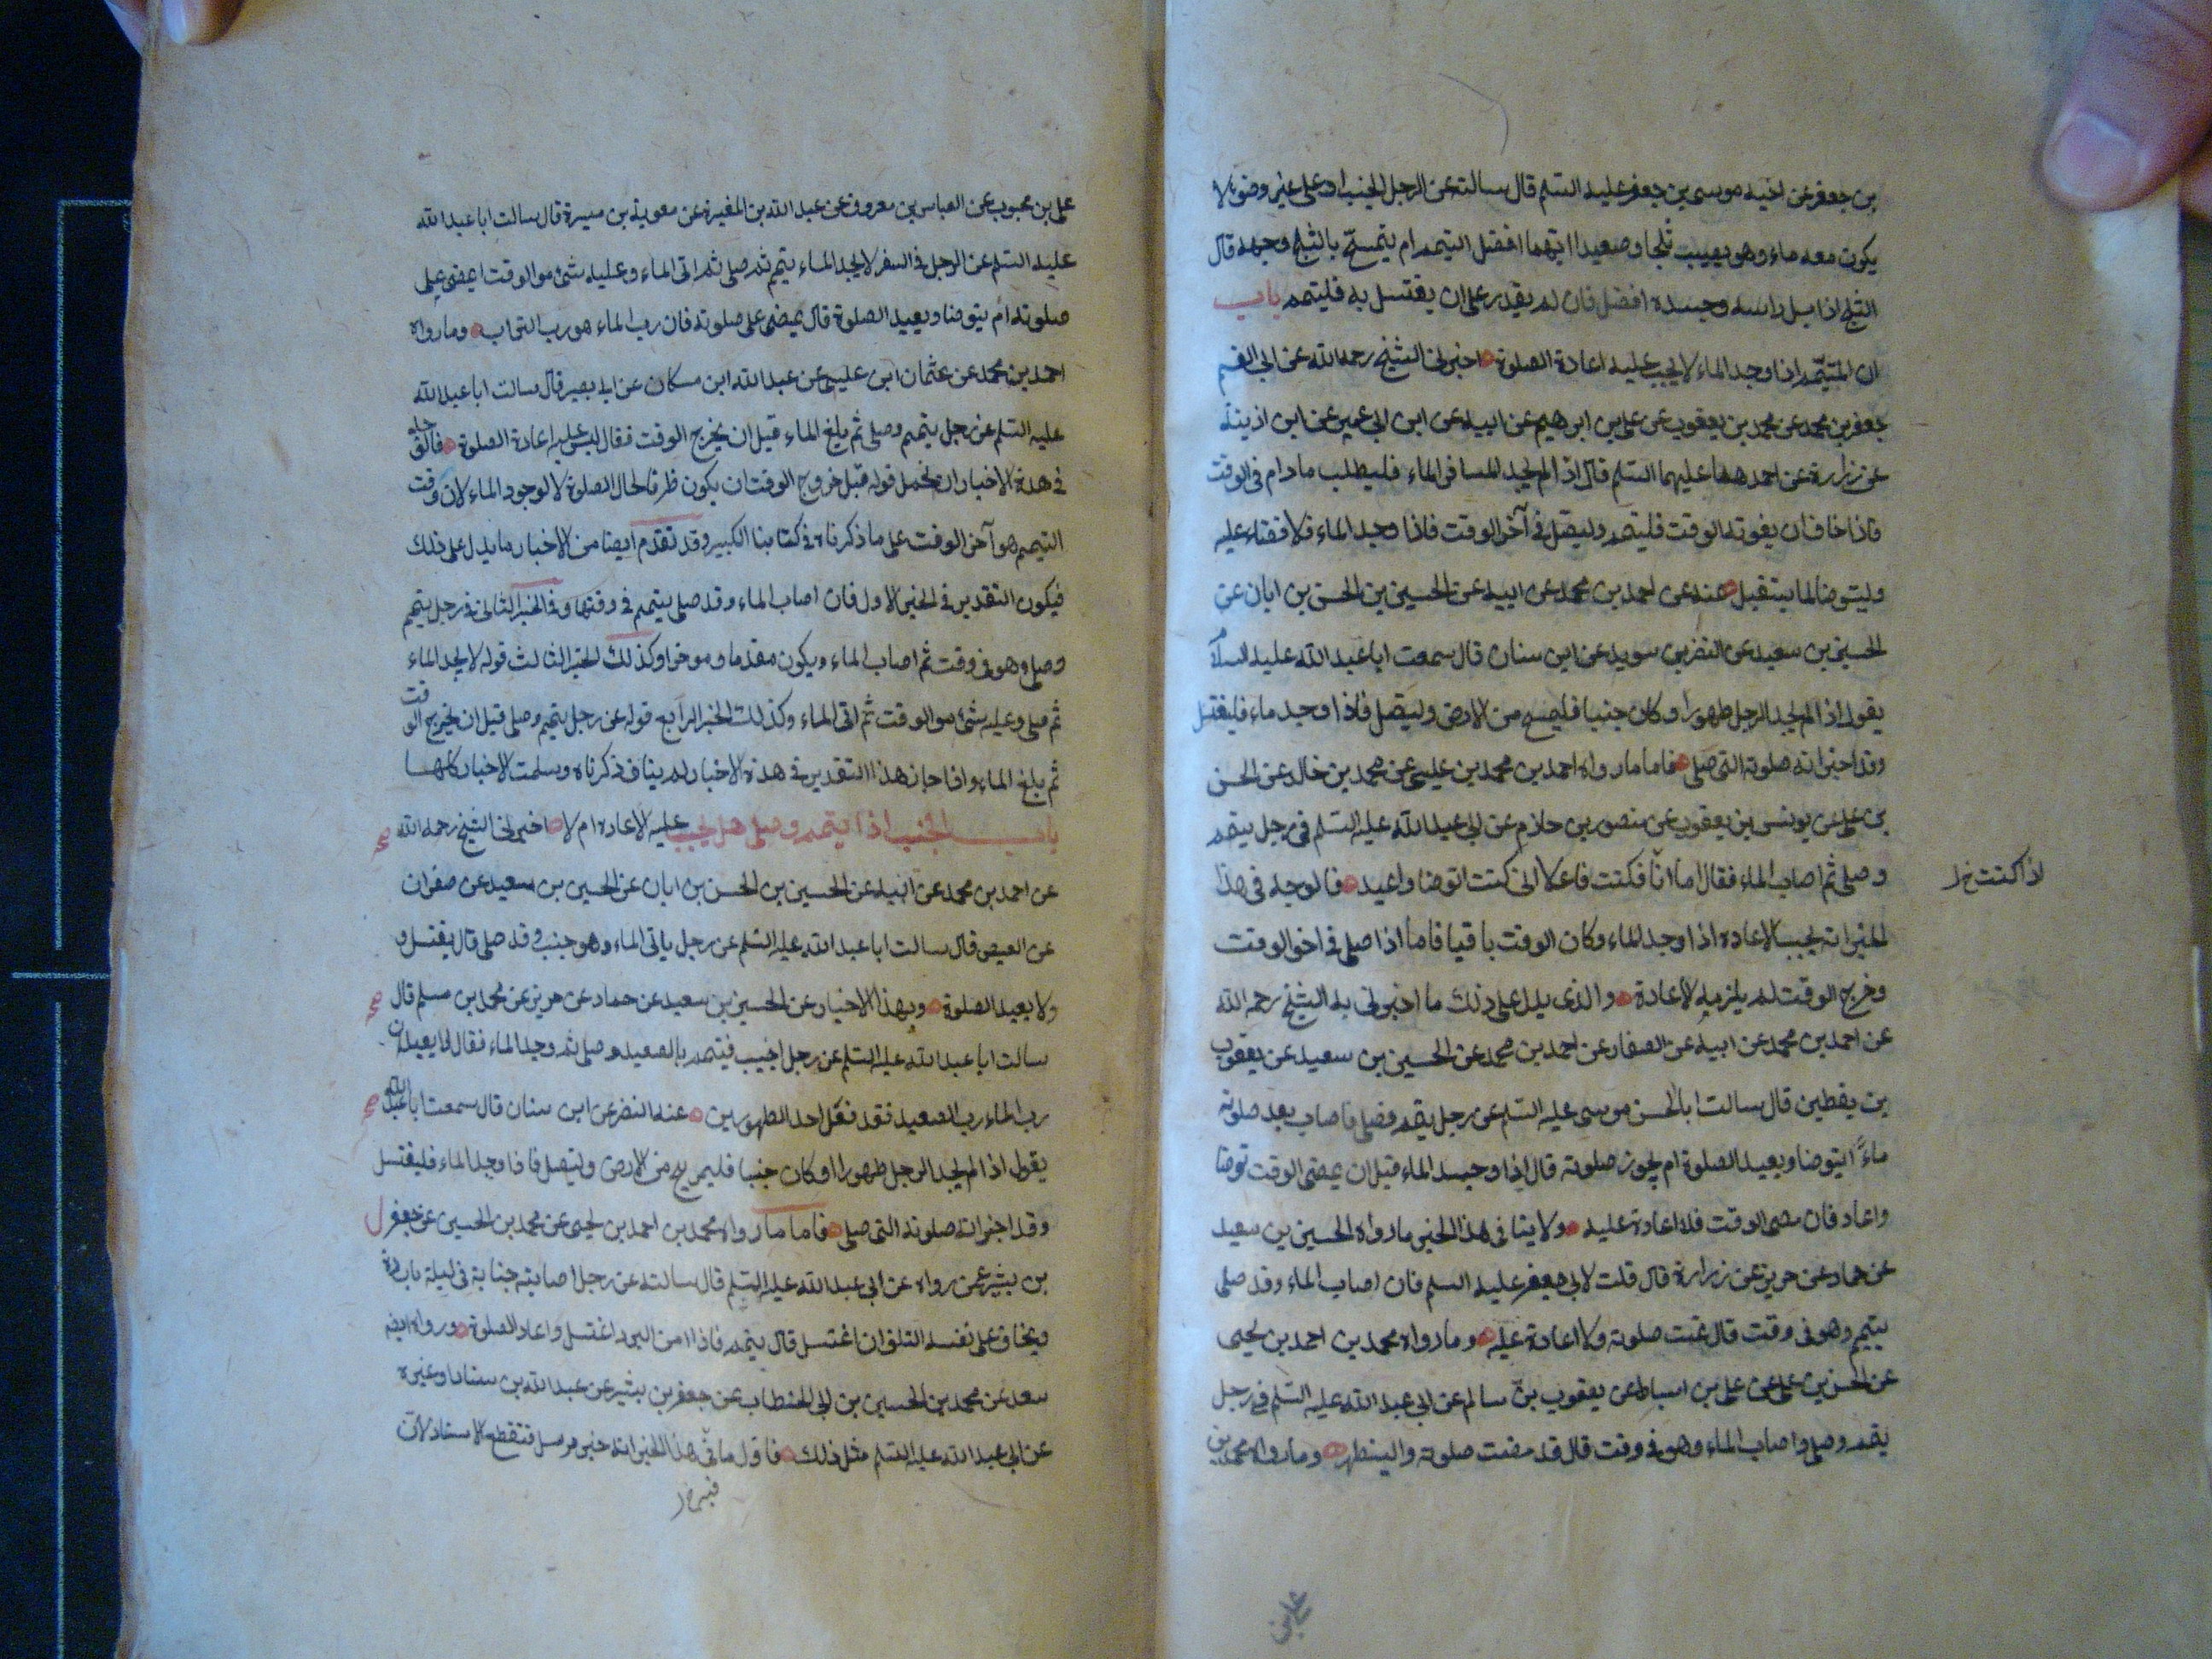 بن جعفر عن اخيه موسى بن جعفر عليه السلم قال سالته عن الرجل الجنب او على غير وضوء لا
يكون معه ماء وهو يصيب ثلجا وصعيدا ايهما افضل التيمم ام يتمسح بالثلج وجهه قال
الثلج اذا بل راسه وجسده افضل فان لم يقدر على ان يغتسل به فليتمم باب
ان المتيمم اذا وجد الماء لا يجب عليه اعادة الصلوة اخبرني الشيخ رحمه الله عن ابي القسم
جعفر بن محمد عن محمد بن يعقوب عن علي بن ابرهيم عن ابيه عن ابن ابي عمير عن ابن اذينة
عن زرارة عن احدهما عليهما السلم قال اذا لم يجد المسافر الماء فليطلب مادام في الوقت
فاذا خاف ان يفوته الوقت فليتمم وليصل في آخر الوقت فاذا وجد الماء فلا قضاء عليه
وليتوضا لما يستقبل عنه عن احمد بن محمد عن ابيه عن الحسين بن الحسن بن ابان عن
الحسين بن سعيد عن النضر بن سويد عن ابن سنان قال سمعت ابا عبد الله عليه السلام
يقول اذا لم يجد الرجل طهورا وكان جنبا فليمسح من الارض وليصل فاذا وجد ماء فليغتسل
وقد اجزاته صلوته التي صلى فاما مارواه احمد بن محمد بن عيسى عن محمد بن خالد عن الحسن
بن علي عن يونس بن يعقوب عن منصور بن حازم عن ابي عبد الله عليه السلم في رجل تيمم
وصلى ثم اصاب الماء فقال اما انا فكنت فاعلا اني كنت اتوضا واعيد فالوجه في هذا
اذا كنت خ ل
الخبر انه يجب الاعادة اذا وجد الماء وكان الوقت باقيا فاما اذا صلى في اخر الوقت
وخرج الوقت لم يلزمه الاعادة والذي يدل على ذلك ما اخبرني به الشيخ رحمه الله
عن احمد بن محمد عن ابيه عن الصفار عن احمد بن محمد عن الحسين بن سعيد عن يعقوب
بن يقطين قال سالت ابا الحسن موسى عليه السلم عن رجل تيمم فصلى فاصاب بعد صلوته
ماءً ايتوضا ويعيد الصلوة ام يجوز صلوته قال اذا وجد الماء قبل ان يمضى الوقت توضا
واعاد فان مضى الوقت فلا اعادة عليه ولا ينافى هذا الخبر مارواه الحسين بن سعيد
عن حماد عن حريز عن زرارة قال قلت لابي جعفر عليه السلم فان اصاب الماء وقد صلى
بتيمم وهو في وقت قال تمت صلوته ولا اعادة عليه ومارواه محمد بن احمد بن يحيى
عن الحسن بن علي عن علي بن اسباط عن يعقوب بن سالم عن ابي عبد الله عليه السلم في رجل
تيمم وصلى واصاب الماء وهو في وقت قال قد مضت صلوته وليتطهر ومارواه محمد بن
علي بن
علي بن محبوب عن العباس بن معروف عن عبد الله بن المغيرة عن معوية بن ميسرة قال سالت ابا عبد الله
عليه السلم عن الرجل في السفر لا يجد الماء يتيمم ثم صلى ثم اتى الماء وعليه شئ من الوقت ايمضى على
صلوته ام يتوضا ويعيد الصلوة قال يمضى على صلوته فان رب الماء هو رب التراب ومارواه
احمد بن محمد عن عثمان ابن عليسى عن عبد الله ابن مسكان عن ابي بصير قال سالت ابا عبد الله
عليه السلم عن رجل يتيمم وصلى ثم بلغ الماء قبل ان يخرج الوقت فقال ليس عليه اعادة الصلوة فالوجه
في هذه الاخبار ان نحمل قوله قبل خروج الوقت ان يكون ظرفا لحال الصلوة لا لوجود الماء لان وقت
التيمم هو آخر الوقت على ما ذكرناه في كتابنا الكبير وقد تقدم ايضا من الاخبار ما يدل على ذلك
فيكون التقدير في الخبر الاول فان اصاب الماء وقد صلى بتيمم في وقتها وفي الخبر الثاني في رجل يتيمم
وصلى وهو في وقت ثم اصاب الماء ويكون مقدما وموخرا وكذلك الخبر الثالث قوله لا يجد الماء
ثم صلى وعليه شئ من الوقت ثم اتى الماء وكذلك الخبر الرابع قوله عن رجل يتيمم وصلى قبل ان يخرج الوقت
ثم بلغ الماء واذا جاز هذا التقدير في هذه الاخبار لم يناف ذكرناه وسلمت الاخبار كلها
باب الجنب اذا تيمم وصلى هل يجب عليه الاعادة ام لا اخبرني الشيخ رحمه الله
عن احمد بن محمد عن ابيه عن الحسين بن الحسن بن ابان عن الحسين بن سعيد عن صفوان
عن العيص قال سالت ابا عبد الله عليه السلم عن رجل ياتى الماء وهو جنب وقد صلى قال يغتسل و
ولا يعيد الصلوة وبهذا الاخبار عن الحسين بن سعيد عن حماد عن حريز عن محمد بن مسلم قال
سالت ابا عبد الله عليه السلم عن رجل اجنب فتيمم بالصعيد وصلى ثم وجد الماء فقال لا يعيد ان
رب الماء رب الصعيد فقد فعل احد الطهورين عنه النضر عن ابن سنان قال سمعت ابا عبد الله
يقول اذا لم يجد الرجل طهورا وكان جنبا فليمسح من الارض وليصل فاذا وجد الماء فليغتسل
وقد اجزاته صلوته التي صلى فاما مارواه محمد بن احمد بن يحيى عن محمد بن الحسين عن جعفر
بن بشير عمن رواه عن ابي عبد الله عليه السلم قال سالته عن رجل اصابته جنابة في ليلة باردة
ويخاف على نفسه التلف ان اغتسل قال يتيمم فاذا امن البرد اغتسل واعاد الصلوة ورواه ايضا
سعد عن محمد بن الحسين بن ابي الخطاب عن جعفر بن بشير عن عبد الله بن سنان او غيره
عن ابي عبد الله عليه السلم مثل ذلك فاول ما في هذا الخبر انه خبر مرسل فنقطع الاسناد لان